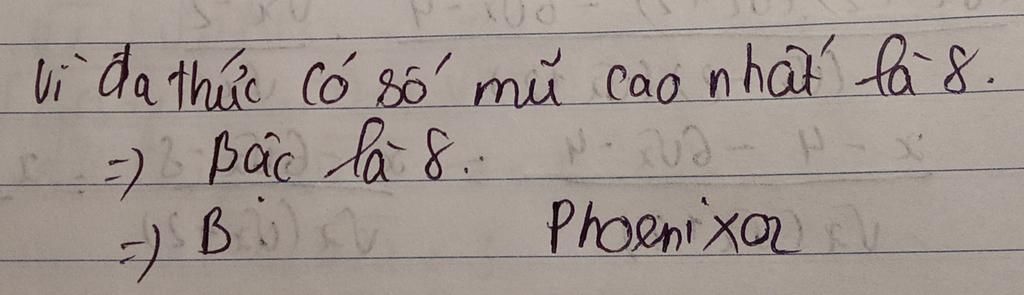 Vì đa thức có số mũ cao nhất là 8.
=) Bậc là 8.
=) B Phoenixoz